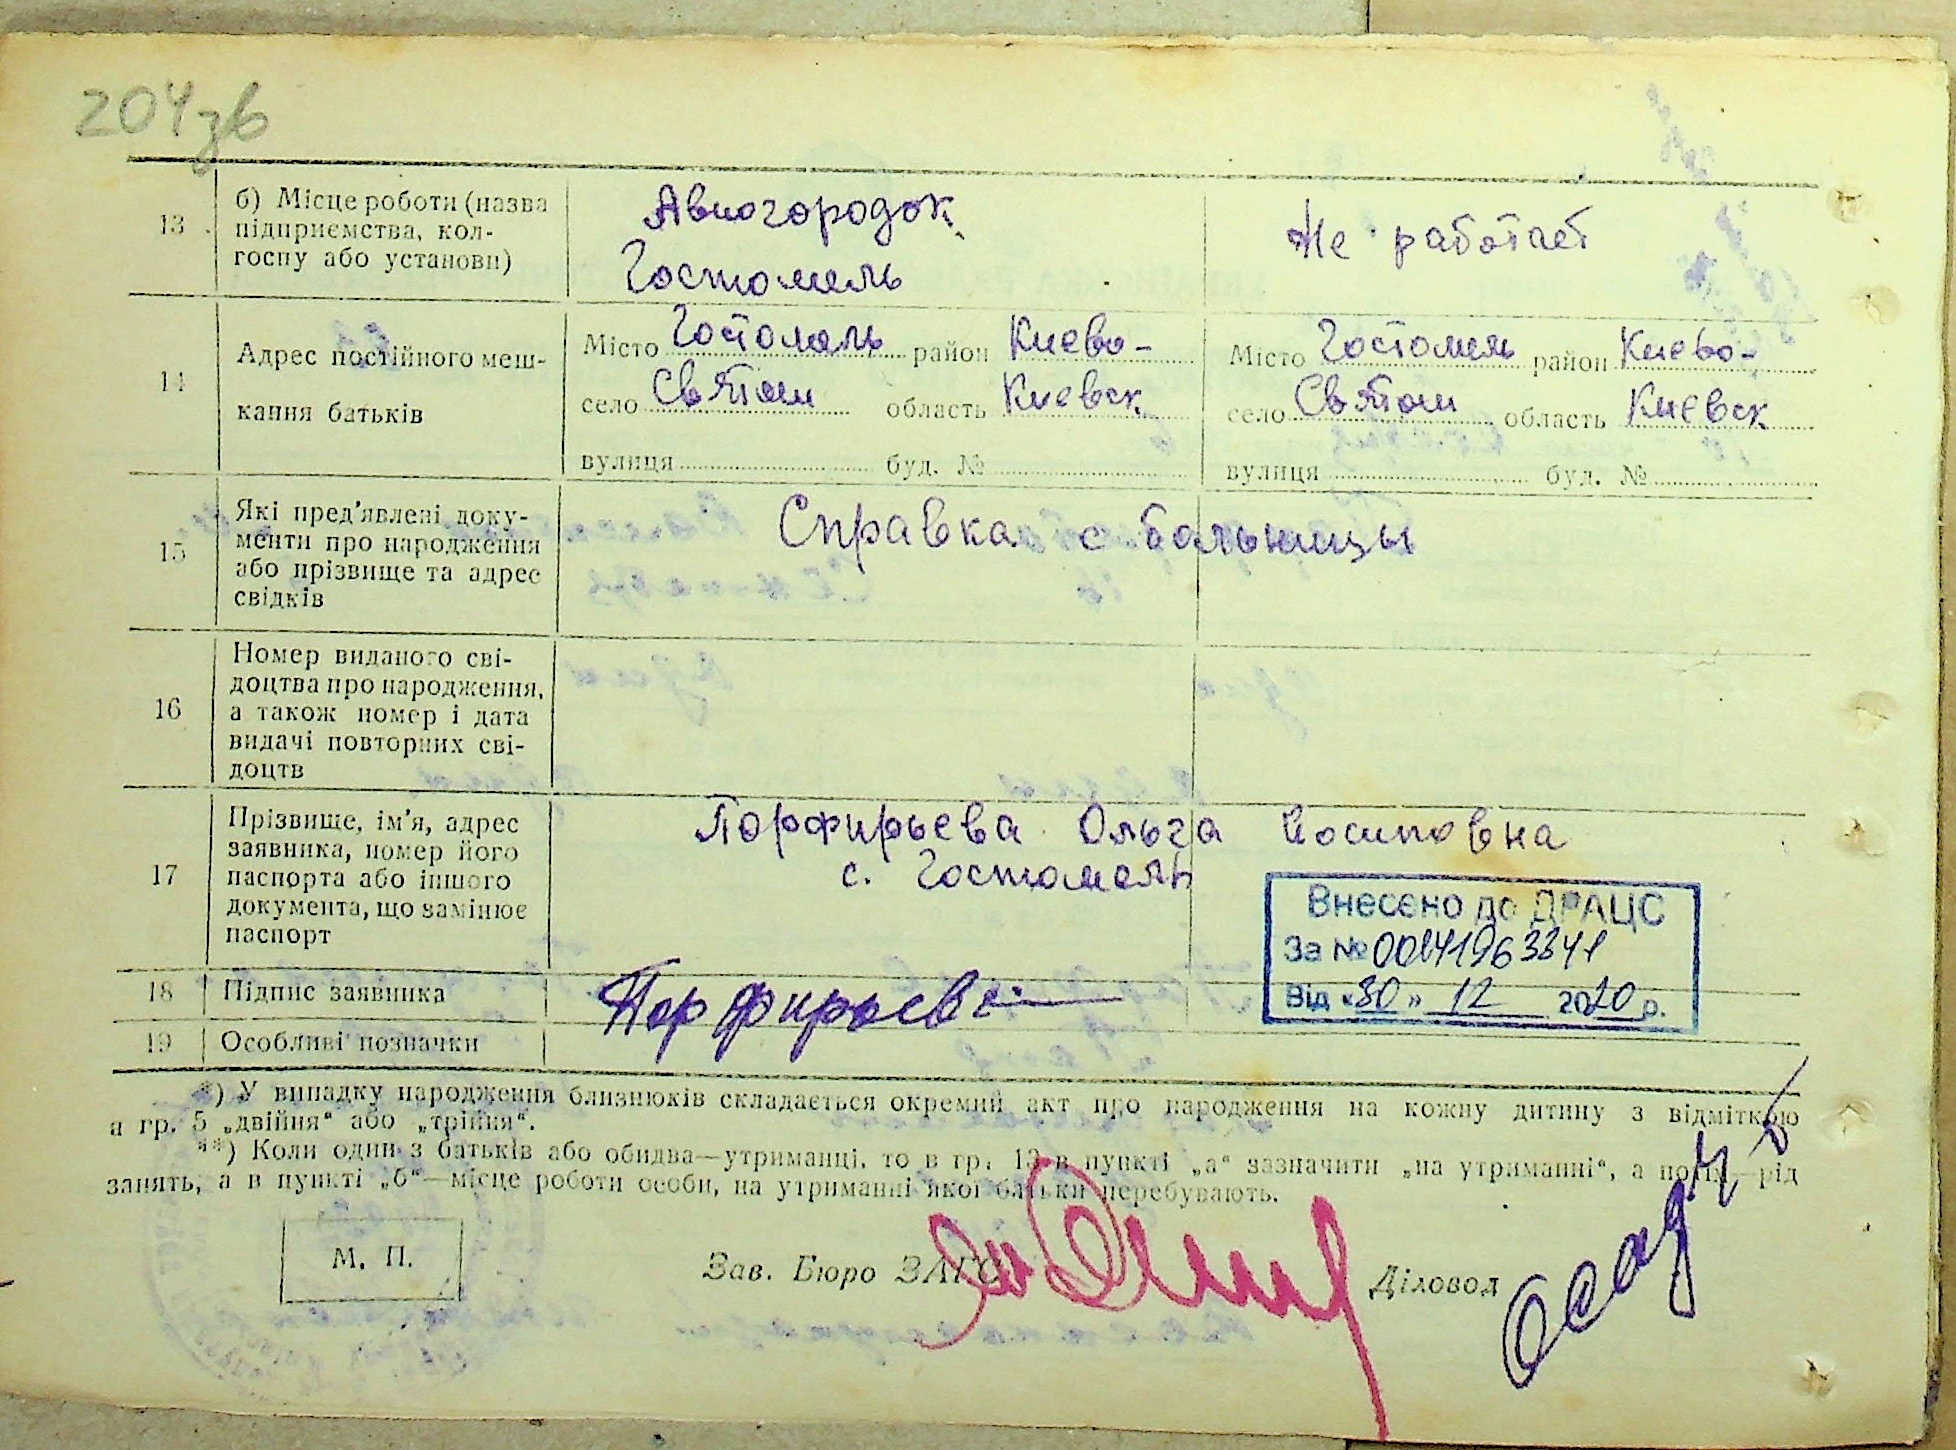 204зв
13
б) Місце роботи (назва
підприємства, кол-
госпу або установи)
Авиогородок
Гостомель
Не работает
14
Адрес постійного меш-
кання батьків
Місто Гостомель район Киево-
село Святош область Киевск
вулиця буд. №
Місто Гостомель район Киево-
село Святош область Киевск
вулиця буд. №
15
Які пред'явлені доку-
менти про народження
або прізвище та адрес
свідків
Справка с больницы
16
Номер виданого сві-
доцтва про народження,
а також номер і дата
видачі повторних сві-
доцтв
17
Прізвище, ім'я, адрес
заявника, номер його
паспорта або іншого
документа, що замінює
паспорт
Порфирьева Ольга Иосиповна
с. Гостомель
Внесено до ДРАЦС
За № 00241963341
Від «30» 12 2020 р.
18
Підпис заявника
Порфирьева
19
Особливі позначки
*) У випадку народження близнюків складається окремий акт про народження на кожну дитину з відміткою
а гр. 5 „двійня“ або „трійня“.
**) Коли один з батьків або обидва—утриманці, то в гр. 13 в пункті „а“ зазначити „на утриманні“, а потім—рід
занять, а в пункті „б“—місце роботи особи, на утриманні якої батьки перебувають.
М. П.
Зав. Бюро ЗАГС
Діловод